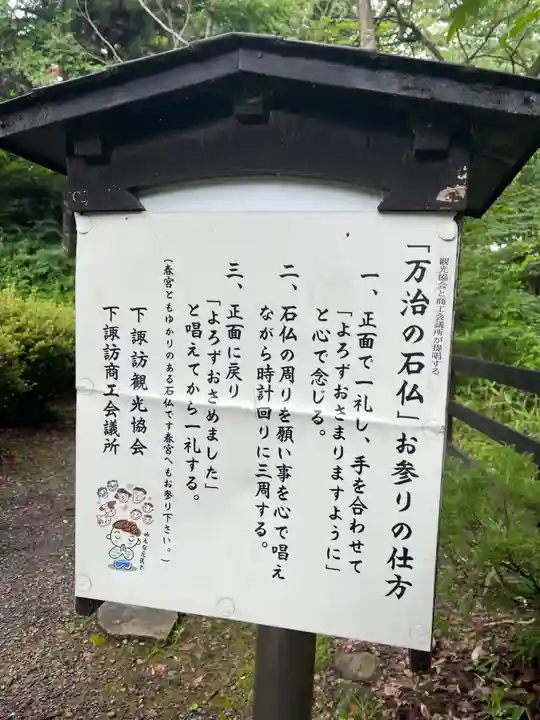 観光協会と商工会議所が提唱する
「万治の石仏」お参りの仕方
一、正面で一礼し、手を合わせて
「よろずおさまりますように」
と心で念じる。
二、石仏の周りを願い事を心で唱え
ながら時計回りに三周する。
三、正面に戻り
「よろずおさめました」
と唱えてから一礼する。
(春宮ともゆかりのある石仏です春宮へもお参り下さい。)
下諏訪観光協会
下諏訪商工会議所
みんな元気で